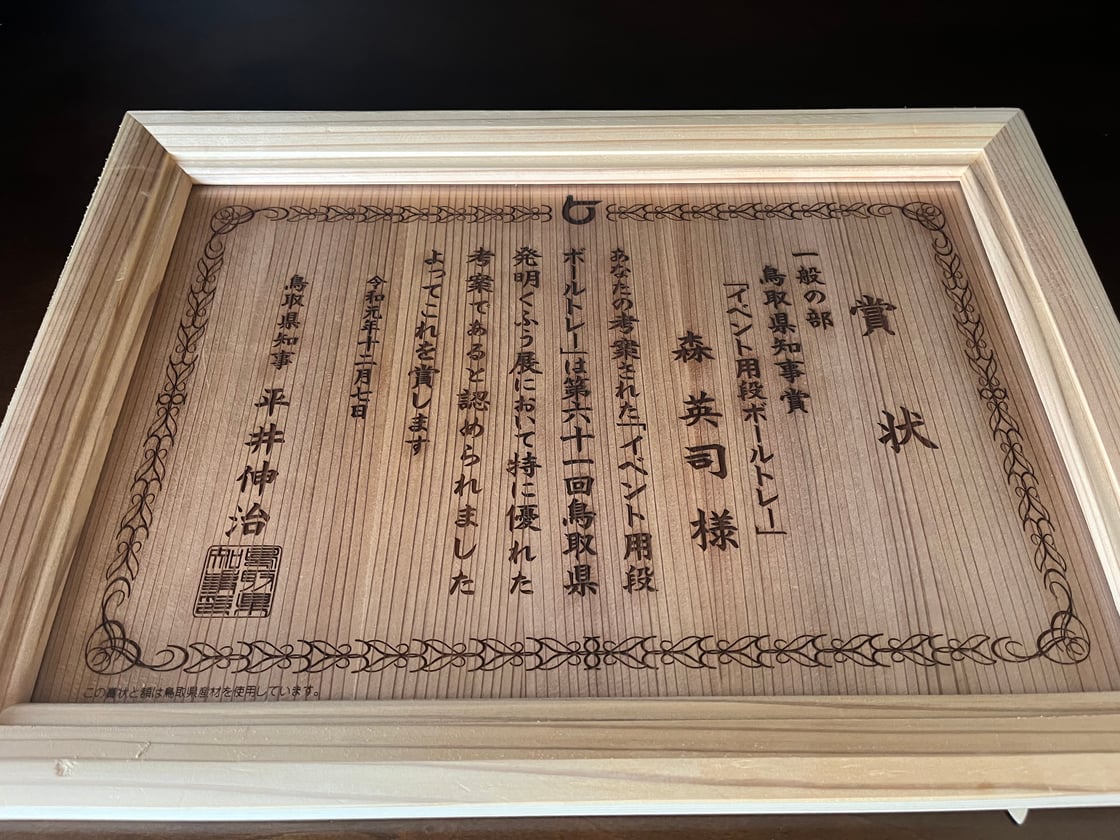 賞状
一般の部
鳥取県知事賞
「イベント用段ボールトレー」
森英司様
あなたの考案された「イベント用段
ボールトレー」は第六十一回鳥取県
発明くふう展において特に優れた
考案であると認められました
よってこれを賞します
令和元年十二月七日
鳥取県知事 平井伸治
この賞状と額は鳥取県産材を使用しています。